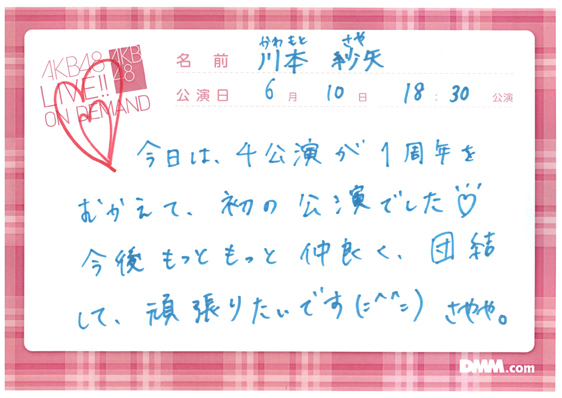 AKB48
AKB48
LIVE!!
ON DEMAND
かわもと さや
名前 川本 紗矢
公演日 6月 10日 18:30 公演
今日は、4公演が1周年を
むかえて、初の公演でした♡
今後もっともっと仲良く、団結
して、頑張りたいです(=^^=) さやや。
DMM.com